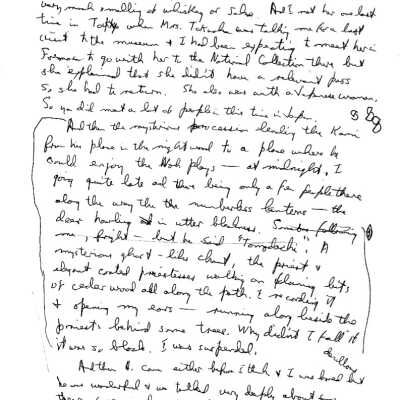 very much smelling of whiskey or Sake. And I met her one last
time in Tokyo when Mrs. Takashi was talking me for a last
visit to the museum & I had been expecting to meet her in
to go with her to the National Collection there but
she explained that she didn't have a relevant pass
so she had to return. She also was with a Japanese woman.
So you did meet a lot of people this time in Japan.
And then the mysterious procession leading the Kami
from his place in the night wood to a place where he
could enjoy the Noh plays — at midnight, I
going quite late and there being only a few people there
along the way the the numberless lanterns — the
deer howling in utter blackness. following
me, fright — but he said "Tomodachi". A
mysterious ghost-like chant, the priest &
elegant coated priestesses walking on flaming bits
of cedar wood all along the path. I recording it
& opening my ears — running along beside the
priests behind some trees. Why didn't I fall it
it was so black. I was suspended.
And then came either before I think & I was bored but
he was wonderful & we talked very deeply about